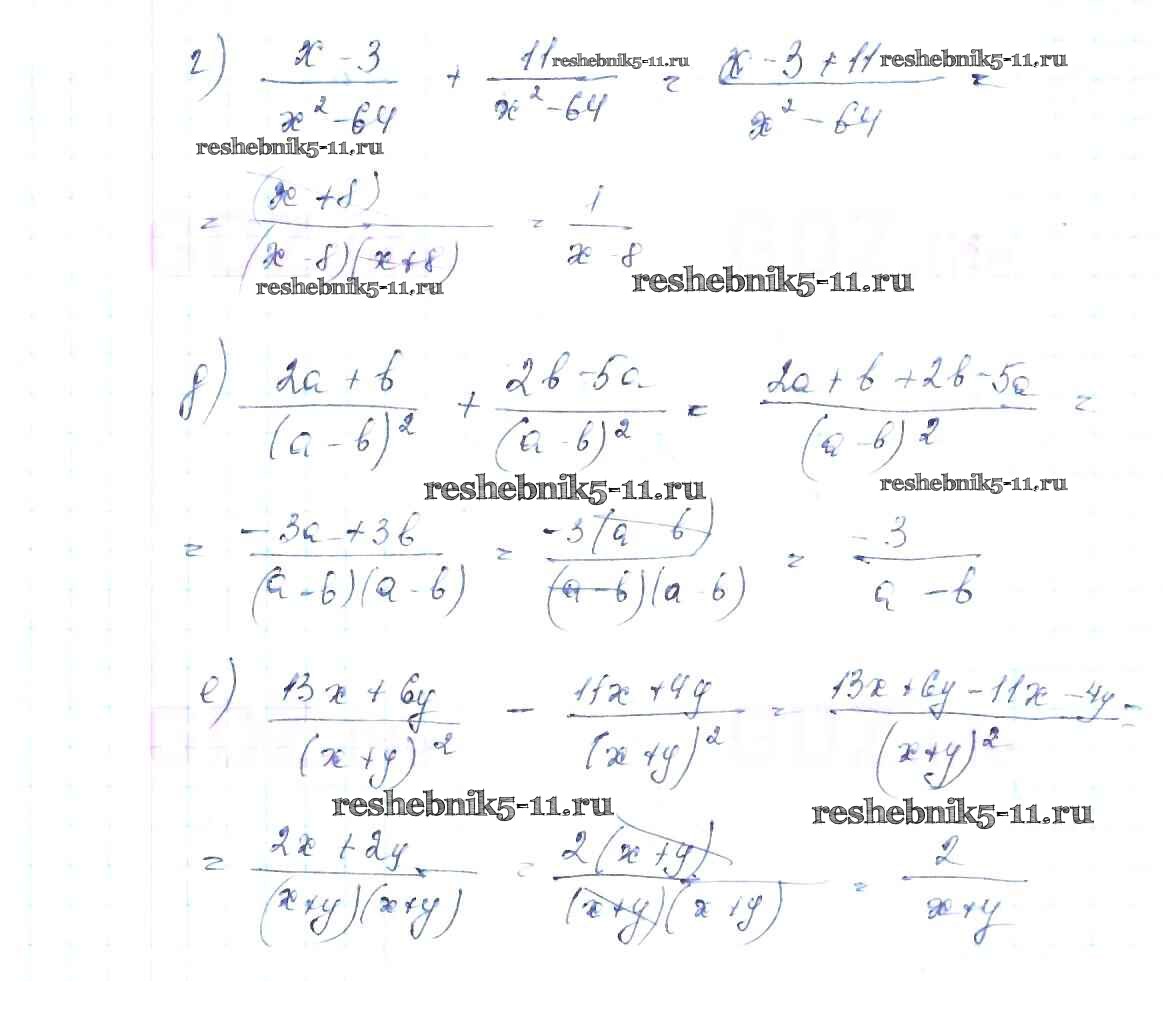 г) x - 3 / x² - 64 + 11 / x² - 64 = x - 3 + 11 / x² - 64 =
reshebnik5-11.ru reshebnik5-11.ru
reshebnik5-11.ru
= (x + 8) / (x - 8)(x + 8) = 1 / x - 8
reshebnik5-11.ru reshebnik5-11.ru
д) 2a + b / (a - b)² + 2b - 5a / (a - b)² = 2a + b + 2b - 5a / (a - b)² =
reshebnik5-11.ru reshebnik5-11.ru
= -3a + 3b / (a - b)(a - b) = -3(a - b) / (a - b)(a - b) = -3 / a - b
е) 13x + 6y / (x + y)² - 11x + 4y / (x + y)² = 13x + 6y - 11x - 4y / (x + y)² =
reshebnik5-11.ru reshebnik5-11.ru
= 2x + 2y / (x + y)(x + y) = 2(x + y) / (x + y)(x + y) = 2 / x + y